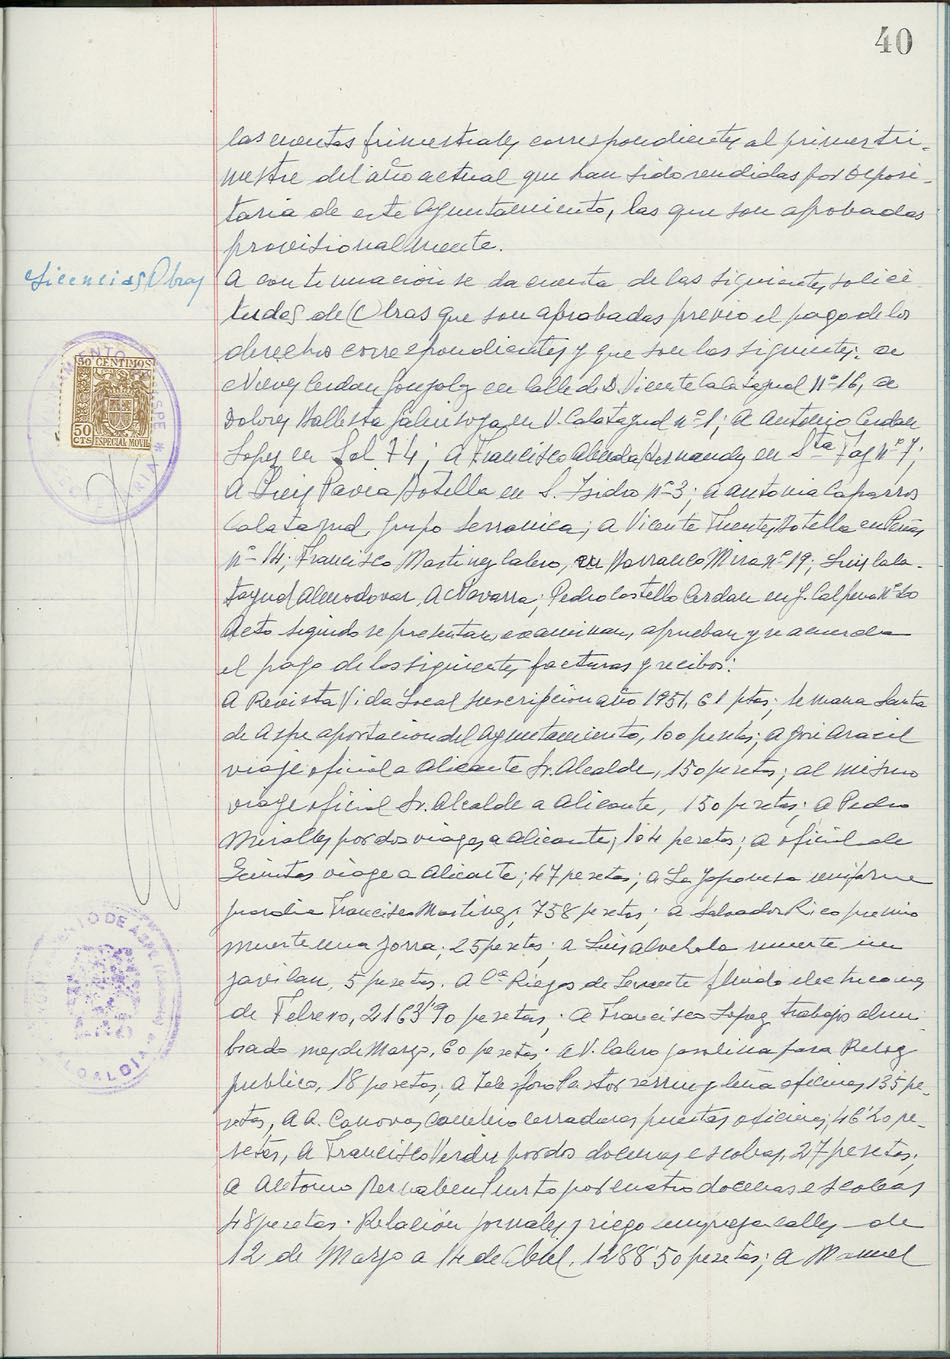 40
las cuentas trimestrales correspondientes al primer tri-
mestre del año actual que han sido rendidas por Deposi-
taria de este Ayuntamiento, las que son aprobadas
provisionalmente.
Licencias Obras
A continuación se da cuenta de las siguientes solici
tudes de Obras que son aprobadas previo el pago de los
derechos correspondientes y que son las siguientes: a
Nieves Cerdan Gonzalez en calle de D. Vicente Calatayud nº 16, a
Dolores Ballesta en V. Calatayud nº 1; a Antonio Cerdan
Lopez en Sol 74; a Francisco Hernandez en Sta Faz nº 7;
A Luis Pavia Botella en S. Isidro nº 3; a Antonia Caparros
Calatayud, Grupo Serranica; a Vicente Fuentes Botella en
nº 14; Francisco Martinez Calero, en Barranco Mira nº 19; Luis Cala-
tayud Almodovar, A Navarra; Pedro Castello Cerdan en J. Calpena nº 20
Acto seguido se presentan, examinan, aprueban y se acuerda
el pago de los siguientes facturas y recibos:
A Revista Vida Local suscripcion año 1951, 61 ptas; Semana Santa
de Aspe aportacion del Ayuntamiento, 100 pesetas; a José Aracil
viaje oficial a Alicante Sr. Alcalde, 150 pesetas; al mismo
viaje oficial Sr. Alcalde a Alicante, 150 pesetas; a Pedro
Miralles por dos viajes a Alicante, 104 pesetas; a oficial de
Quintas viaje a Alicante; 47 pesetas; a La Japonesa uniforme
guardia Francisco Martinez, 758 pesetas; a Salvador Rico premio
muerte una zorra; 25 pesetas; a Luis muerte un
gavilan, 5 pesetas. A Cª Riegos de Levante fluido electrico mes
de Febrero, 2163'90 pesetas; a Francisco Lopez trabajos alum
brado mes de Marzo, 60 pesetas. a V. Calero gasolina para Reloj
publico, 18 pesetas; a Telesforo Pastor serrin y leña oficinas 135 pe-
setas, a A. Canovas cambio cerraduras puertas oficinas; 46'20 pe-
setas, a Francisco Verdu por dos docenas escobas, 27 pesetas;
a Antonio Bernabeu Puerto por cuatro docenas escobas
48 pesetas. Relación jornales riego limpieza calles de
12 de Marzo a 14 de Abril, 1288'50 pesetas; a Manuel
50 CENTIMOS
50
CTS
ESPECIAL MOVIL
AYUNTAMIENTO DE ASPE
SECRETARIA
AYUNTAMIENTO DE ASPE (Alicante)
ALCALDIA